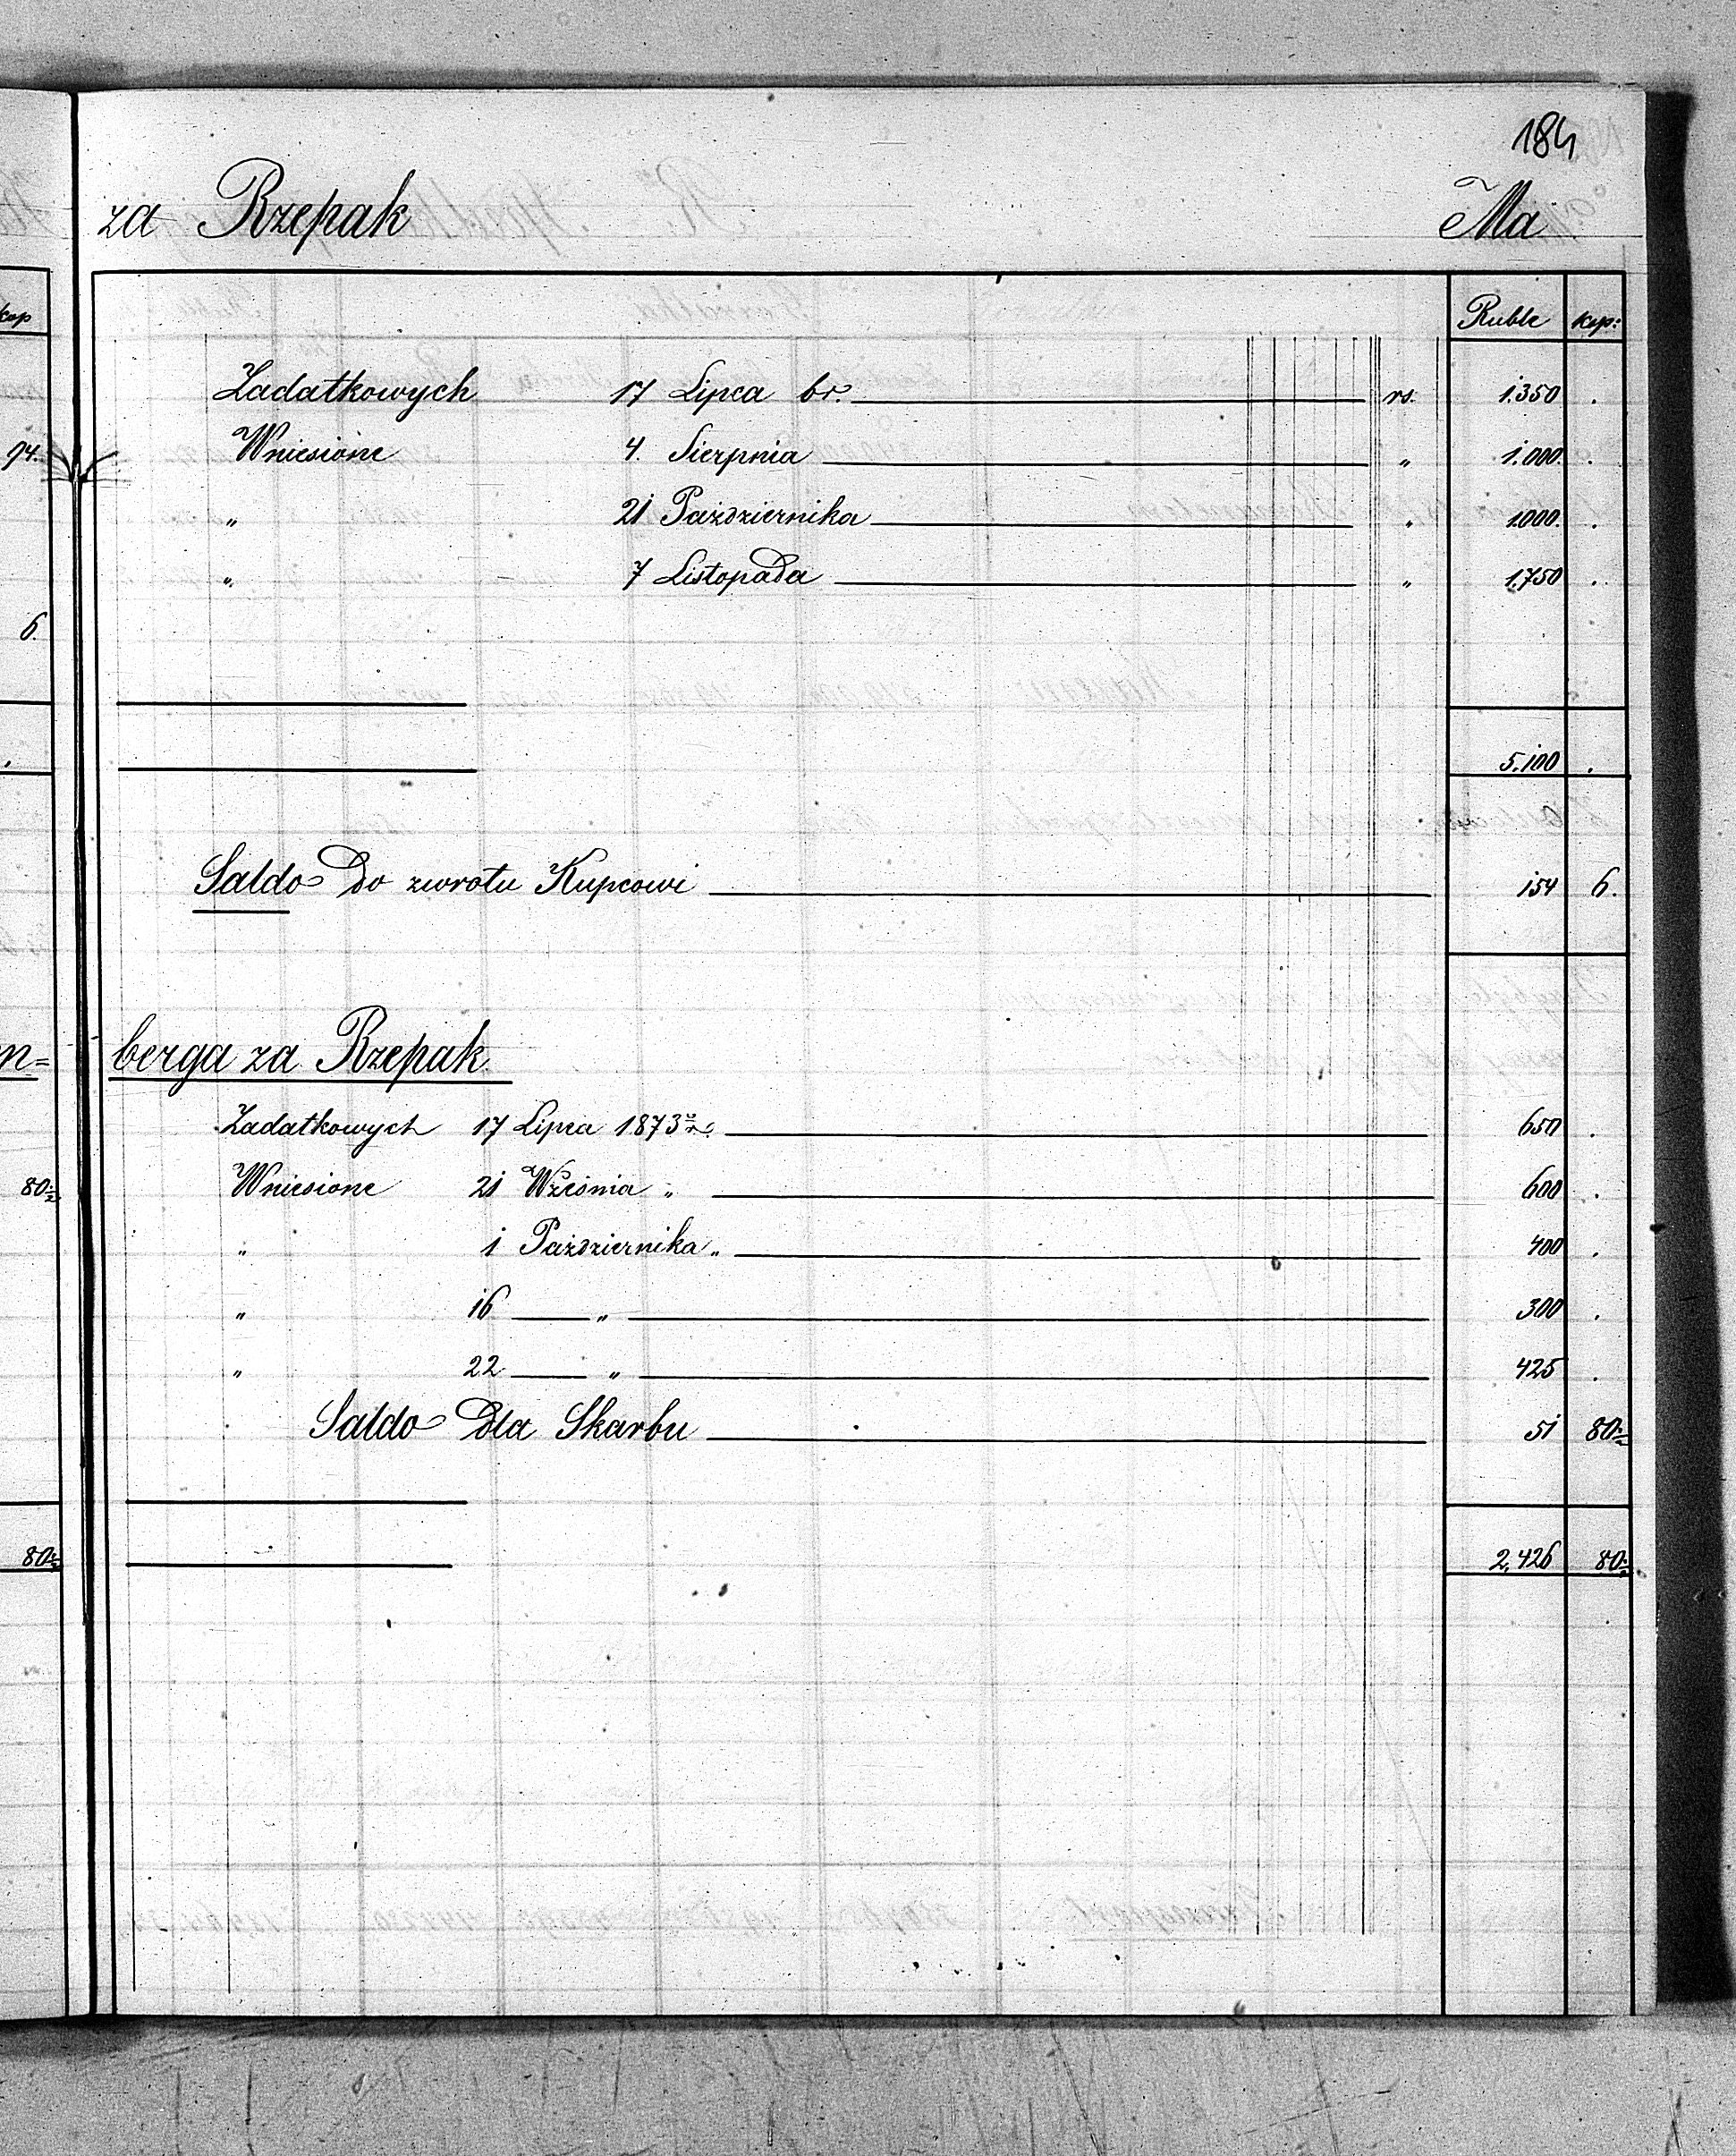 184
za Rzepak Ma
kop Ruble kop:
Zadatkowych 17 Lipca br. rs. 1.350 .
94. Wniesione 4. Sierpnia " 1.000. .
" 21 Października " 1.000. .
" 7 Listopada " 1.750 .
6.
. 5.100 .
Saldo do zwrotu Kupcowi 154 6.
n= berga za Rzepak
Zadatkowych 17 Lipca 1873 650 .
80 Wniesione 21 Września " 600 .
" 1 Października " 400 .
" 16 " 300 .
" 22 " 425 .
Saldo dla Skarbu 51 80
80 2,426 80